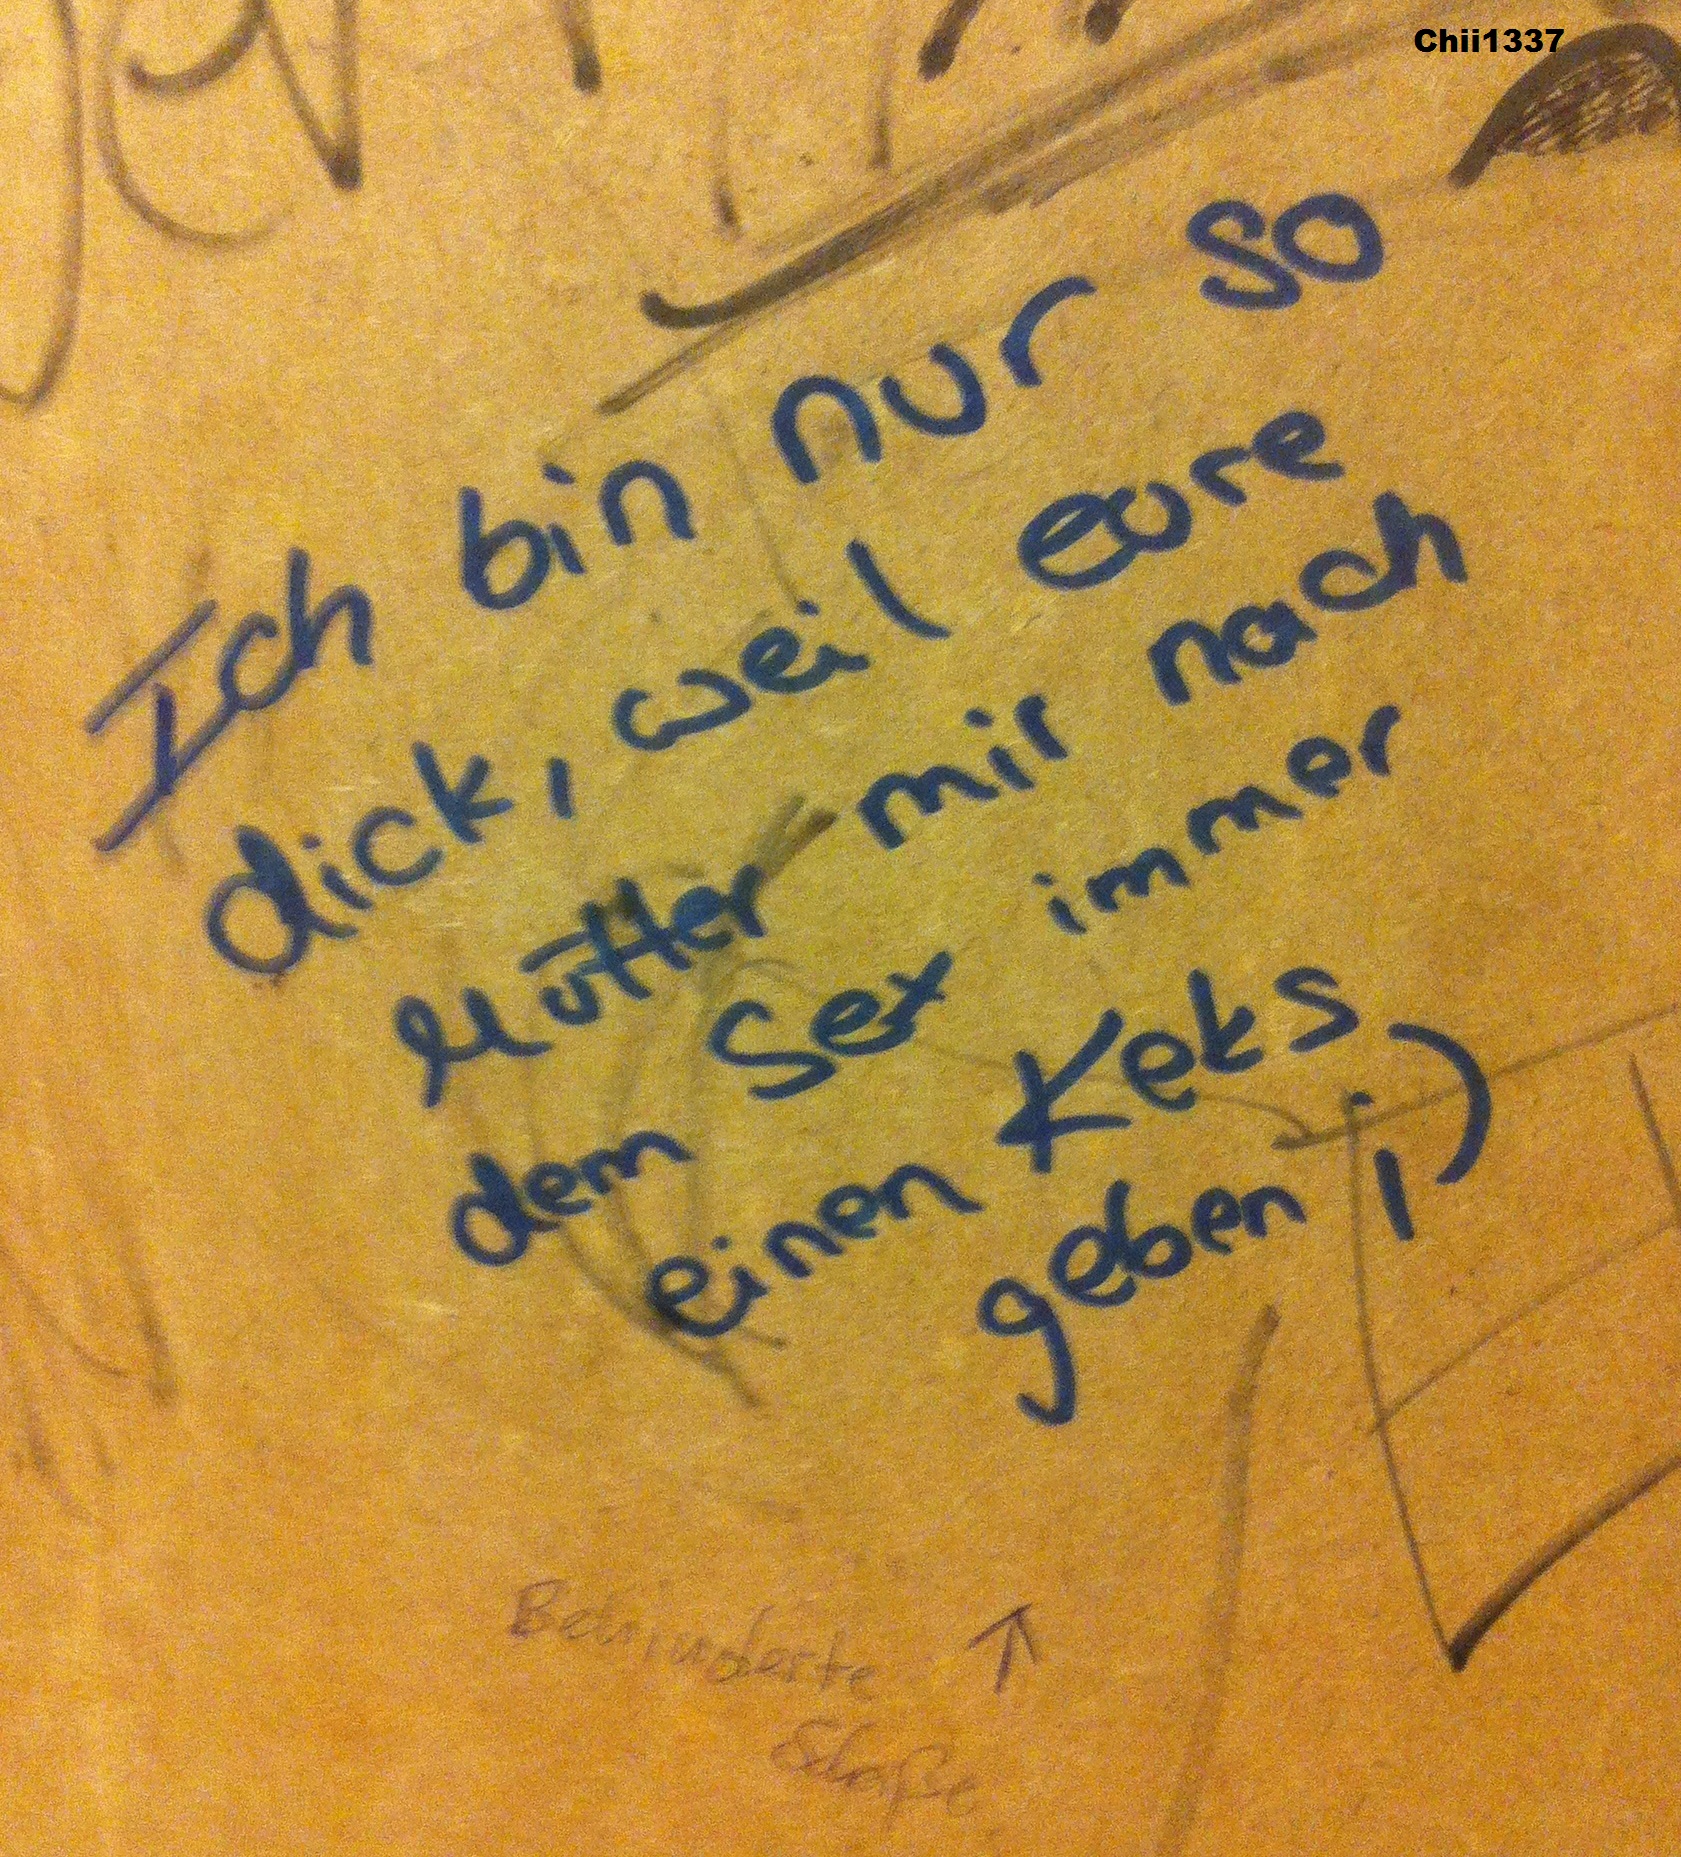 Chii1337
Ich bin nur so
dick, weil eure
Mütter mir nach
dem Sex immer
einen Keks
geben ;)
Behinderte ↑